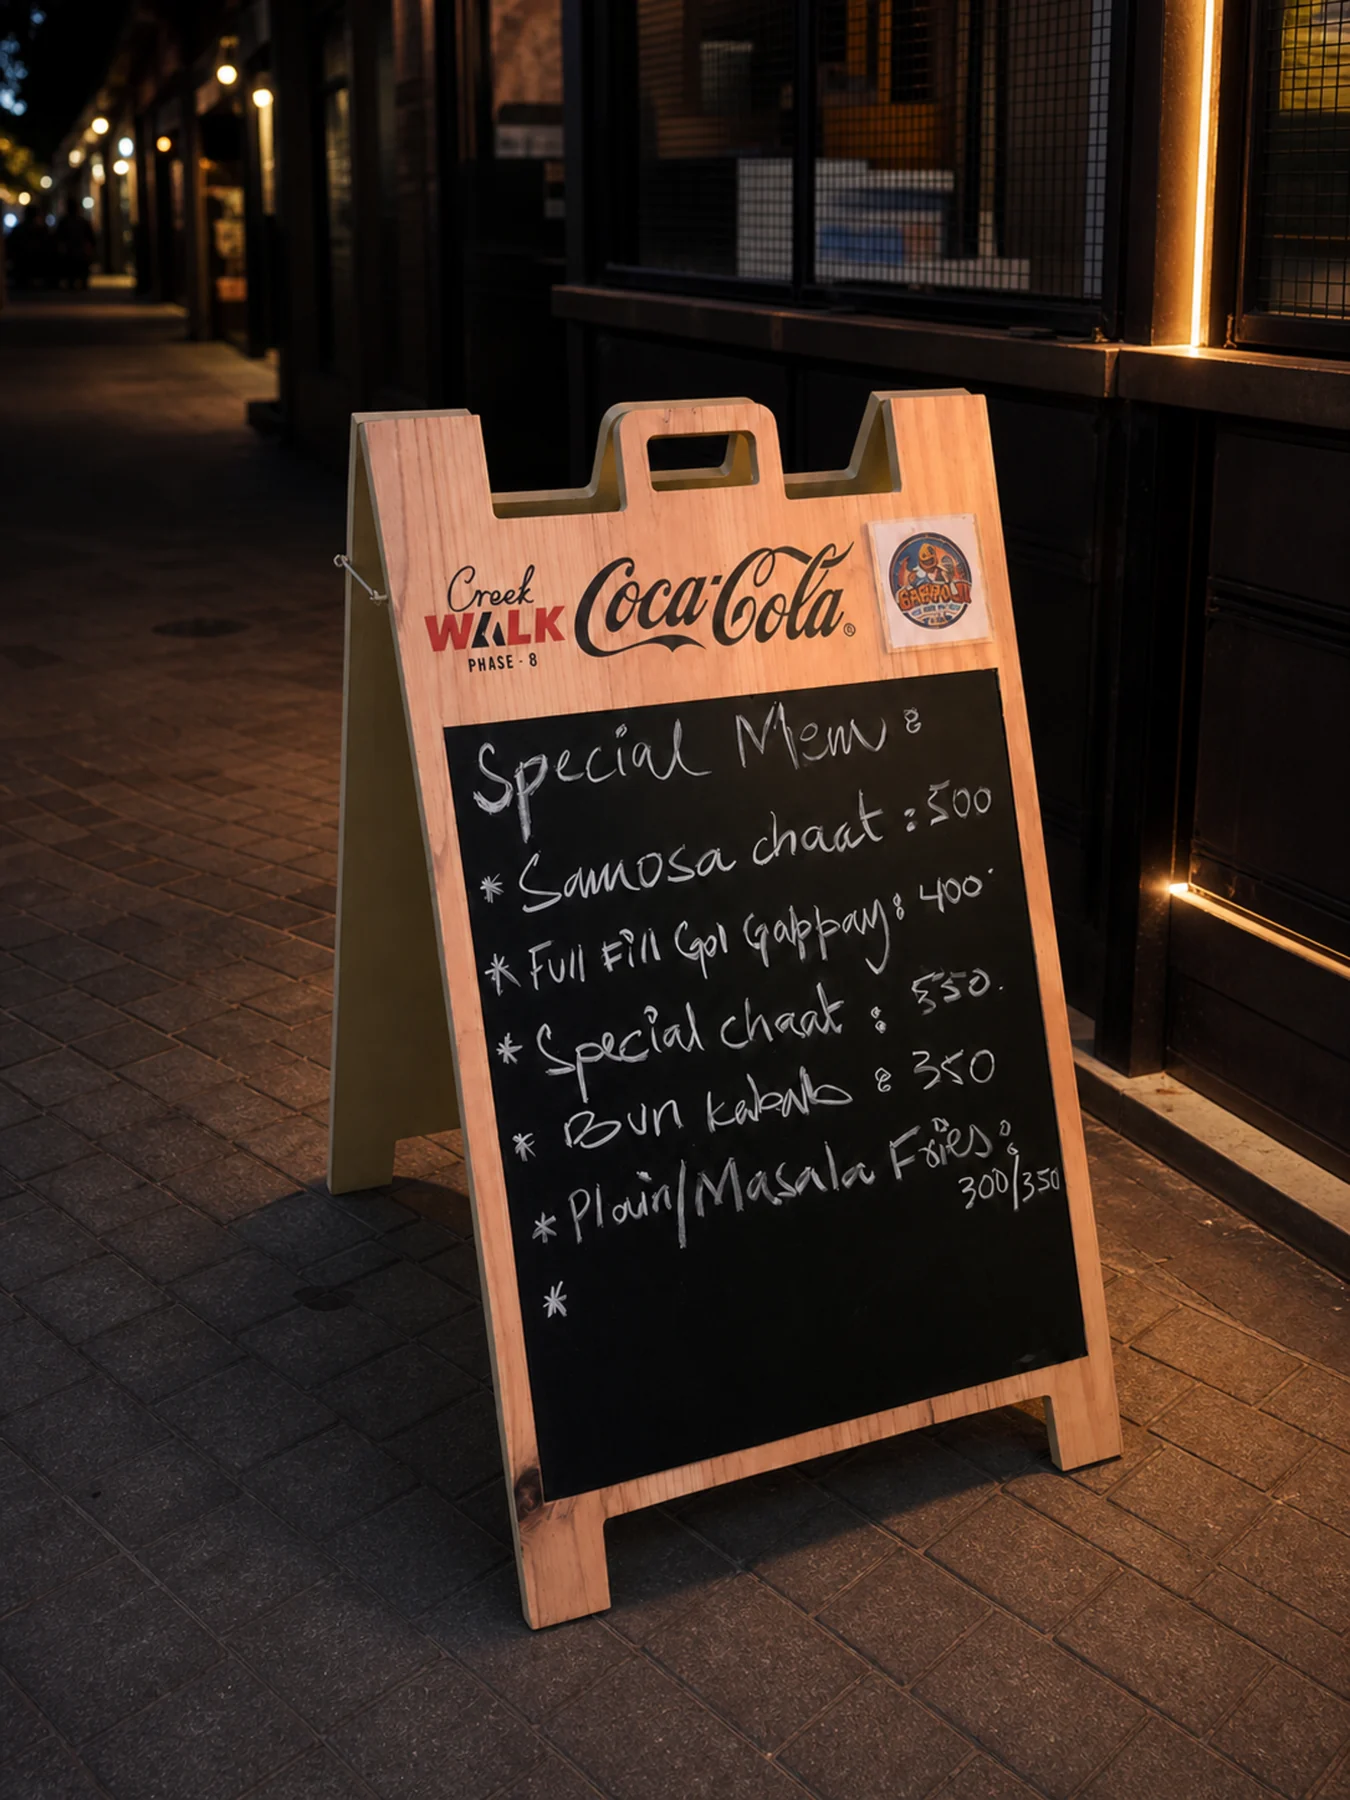 Creek
WALK
PHASE - 8
Coca-Cola®
GAPPO JI
Special Menu :
* Samosa chaat : 500
* Full Fill Gol Gappay : 400
* Special chaat : 550
* Bun kabab : 350
* Plain/Masala Fries :
300/350
*